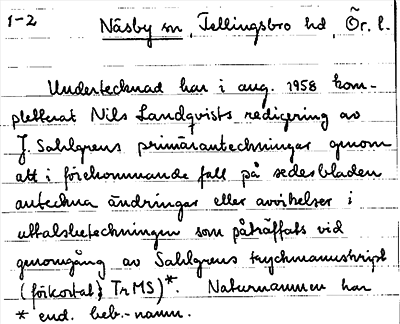 1-2 Näsby sn, Fellingsbro hd, Ör. l.
Undertecknad har i aug. 1958 kom-
pletterat Nils Landqvists redigering av
J. Sahlgrens primäranteckningar genom
att i förekommande fall på sedesbladen
anteckna ändringar eller avvikelser i
uttalsbeteckningen som påträffats vid
genomgång av Sahlgrens tryckmanuskript
(förkortat: Tr MS)*. Naturnamnen har
* end. beb.-namn.